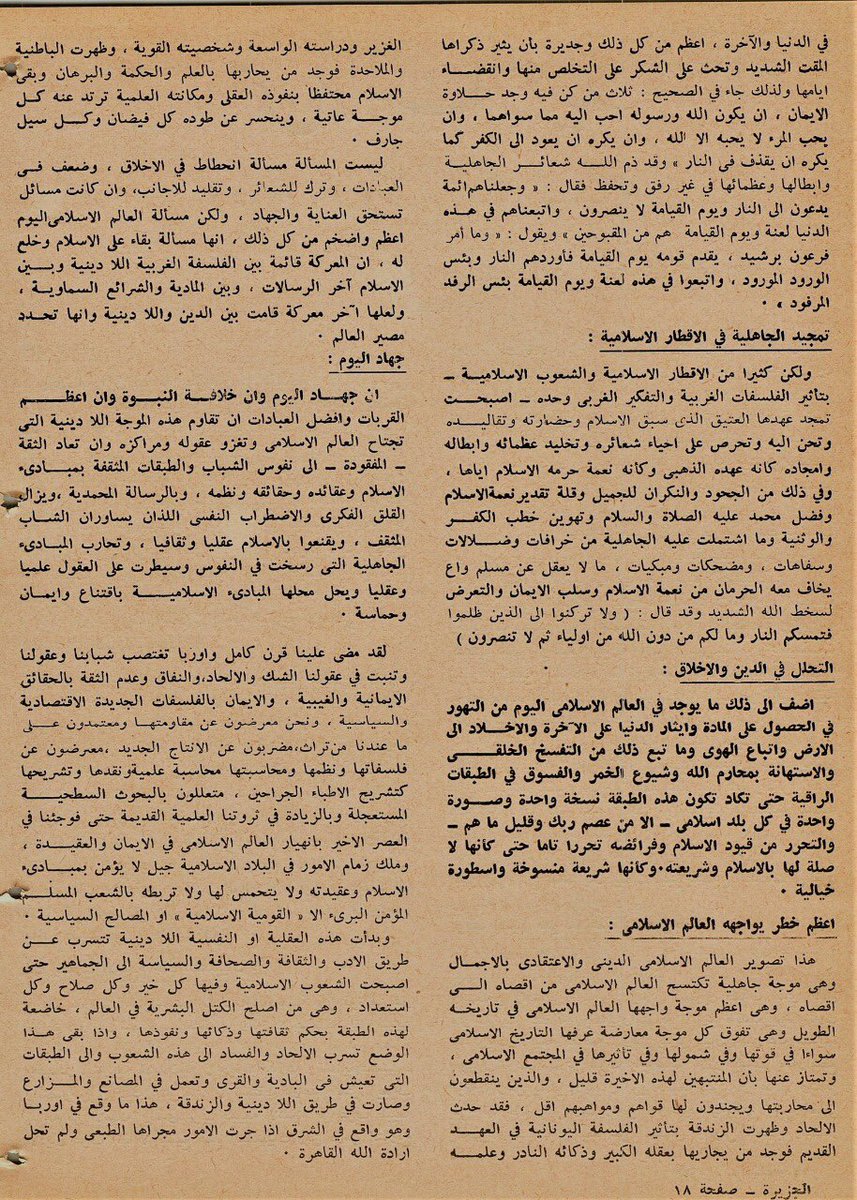 في الدنيا والآخرة ، اعظم من كل ذلك وجديرة بأن يثير ذكراها
المقت الشديد وتحث على الشكر على التخلص منها وانقضـــاء
ايامها ولذلك جاء في الصحيح : ثلاث من كن فيه وجد حـــلاوة
الايمان ، ان يكون الله ورسوله احب اليه مما سواهما ، وان
يحب المرء لا يحبه الا الله ، وان يكره ان يعود الى الكفر كما
يكره ان يقذف فى النار » وقد ذم اللــه شعائـر الجاهلية
وابطالها وعظمائها في غير رفق وتحفظ فقال : « وجعلناهم ائمة
يدعون الى النار ويوم القيامة لا ينصرون ، واتبعناهم في هـذه
الدنيا لعنة ويوم القيامة هم من المقبوحين » ويقول : « وما أمر
فرعون برشيد ، يقدم قومه يوم القيامة فأوردهم النار وبئس
الورود المورود ، واتبعوا في هذه لعنة ويوم القيامة بئس الرفد
المرفود » ·
تمجيد الجاهلية في الاقطار الاسلامية :
ولكن كثيرا من الاقطار الاسلامية والشعوب الاسلاميـة ــ
بتأثير الفلسفات الغربية والتفكير الغربى وحده ــ اصبحـت
تمجد عهدها العتيق الذى سبق الاسلام وحضارته وتقاليـده
وتحن اليه وتحرص على احياء شعائره وتخليد عظمائه وابطاله
وامجاده كانه عهده الذهبى وكأنه نعمة حرمه الاسلام اياها ،
وفي ذلك من الجحود والنكران للجميل وقلة تقدير نعمة الاسلام
وفضل محمد عليه الصلاة والسلام وتهوين خطب الكفـر
والوثنية وما اشتملت عليه الجاهلية من خرافات وضــلالات
وسفاهات ، ومضحكات ومبكيات ، ما لا يعقل عن مسلم واع
يخاف معه الحرمان من نعمة الاسلام وسلب الايمان والتعرض
لسخط الله الشديد وقد قال : ( ولا تركنوا الى الذين ظلموا
فتمسكم النار وما لكم من دون الله من اولياء ثم لا تنصرون )
التحلل في الدين والاخلاق :
اضف الى ذلك ما يوجد في العالم الاسلامى اليوم من التهور
في الحصول على المادة وايثار الدنيا على الآخرة والاخـلاد الى
الارض واتباع الهوى وما تبع ذلك من التفسخ الخلقــى
والاستهانة بمحارم الله وشيوع الخمر والفسوق في الطبقات
الراقية حتى تكاد تكون هذه الطبقة نسخة واحدة وصــورة
واحدة في كل بلد اسلامى ــ الا من عصم ربك وقليل ما هم ــ
والتحرر من قيود الاسلام وفرائضه تحررا تاما حتى كأنها لا
صلة لها بالاسلام وشريعته·وكأنها شريعة منسوخة واسطورة
خيالية ·
اعظم خطر يواجهه العالم الاسلامى :
هذا تصوير العالم الاسلامى الدينى والاعتقادى بالاجمـال
وهى موجة جاهلية تكتسح العالم الاسلامى من اقصاه الــى
اقصاه ، وهى اعظم موجة واجهها العالم الاسلامى في تاريخـه
الطويل وهى تفوق كل موجة معارضة عرفها التاريخ الاسلامى
سواءا في قوتها وفي شمولها وفي تاثيرها في المجتمع الاسلامى ،
وتمتاز عنها بأن المنتبهين لهذه الاخيرة قليل ، والذين ينقطعون
الى محاربتها ويجندون لها قواهم ومواهبهم اقل ، فقد حدث
الالحاد وظهرت الزندقة بتأثير الفلسفة اليونانية في العهـد
القديم فوجد من يجاريها بعقله الكبير وذكائه النادر وعلمــه
الغزير ودراسته الواسعة وشخصيته القوية ، وظهرت الباطنية
والملاحدة فوجد من يحاربها بالعلم والحكمة والبرهان وبقى
الاسلام محتفظا بنفوذه العقلى ومكانته العلمية ترتد عنه كـل
موجة عاتية ، وينحسر عن طوده كل فيضان وكــل سيل
جارف ·
ليست المسألة مسألة انحطاط في الاخلاق ، وضعف فــى
العبادات ، وترك للشعائر ، وتقليد للاجانب، وان كانت مسائل
تستحق العناية والجهاد ، ولكن مسألة العالم الاسلامى اليوم
اعظم واضخم من كل ذلك ، انها مسألة بقاء على الاسلام وخلع
له ، ان المعركة قائمة بين الفلسفة الغربية اللا دينية وبــين
الاسلام آخر الرسالات ، وبين المادية والشرائع السماويـة ،
ولعلها آخر معركة قامت بين الدين واللا دينية وانها تحـدد
مصير العالم ·
جهاد اليوم :
ان جهــاد اليوم وان خلافـة النبـوة وان اعظــم
القربات وافضل العبادات ان تقاوم هذه الموجة اللا دينية التى
تجتاح العالم الاسلامى وتغزو عقوله ومراكزه وان تعاد الثقة
ــ المفقودة ــ الى نفوس الشباب والطبقات المثقفة بمبـادىء
الاسلام وعقائده وحقائقه ونظمه ، وبالرسالة المحمدية ،ويزال
القلق الفكرى والاضطراب النفسى اللذان يساوران الشباب
المثقف ، ويقنعوا بالاسلام عقليا وثقافيا ، وتحارب المبـادىء
الجاهلية التى رسخت في النفوس وسيطرت على العقول علميا
وعقليا ويحل محلها المبادىء الاسلاميــة باقتناع وايمـان
وحماسة ·
لقد مضى علينا قرن كامل واوربا تغتصب شبابنا وعقولنا
وتنبت في عقولنا الشك والالحاد،والنفاق وعدم الثقة بالحقائق
الايمانية والغيبية ، والايمان بالفلسفات الجديدة الاقتصادية
والسياسية ، ونحن معرضون عن مقاومتهـا ومعتمدون علــى
ما عندنا من تراث،مضربون عن الانتاج الجديد ،معرضون عن
فلسفاتها ونظمها ومحاسبتها محاسبة علمية ونقدها وتشريحها
كتشريح الاطباء الجراحين ، متعللون بالبحوث السطحيــة
المستعجلة وبالزيادة في ثروتنا العلمية القديمة حتى فوجئنا في
العصر الاخير بانهيار العالم الاسلامى في الايمان والعقيـدة ،
وملك زمام الامور في البلاد الاسلامية جيل لا يؤمن بمبـادىء
الاسلام وعقيدته ولا يتحمس لها ولا تربطه بالشعب المسلـم
المؤمن البرىء الا « القومية الاسلامية » او المصالح السياسية ·
وبدأت هذه العقلية او النفسية اللا دينية تتسرب عــن
طريق الادب والثقافة والصحافة والسياسة الى الجماهير حتى
اصبحت الشعوب الاسلامية وفيها كل خير وكل صلاح وكل
استعداد ، وهى من اصلح الكتل البشرية في العالم ، خاضعة
لهذه الطبقة بحكم ثقافتها وذكائها ونفوذها ، واذا بقى هـذا
الوضع تسرب الالحاد والفساد الى هذه الشعوب والى الطبقات
التى تعيش فى البادية والقرى وتعمل في المصانع والمــزارع
وصارت في طريق اللا دينية والزندقة ، هذا ما وقع في اوربـا
وهو واقع في الشرق اذا جرت الامور مجراها الطبعى ولم تحل
ارادة الله القاهرة ·
الجزيرة ــ صفحة ١٨